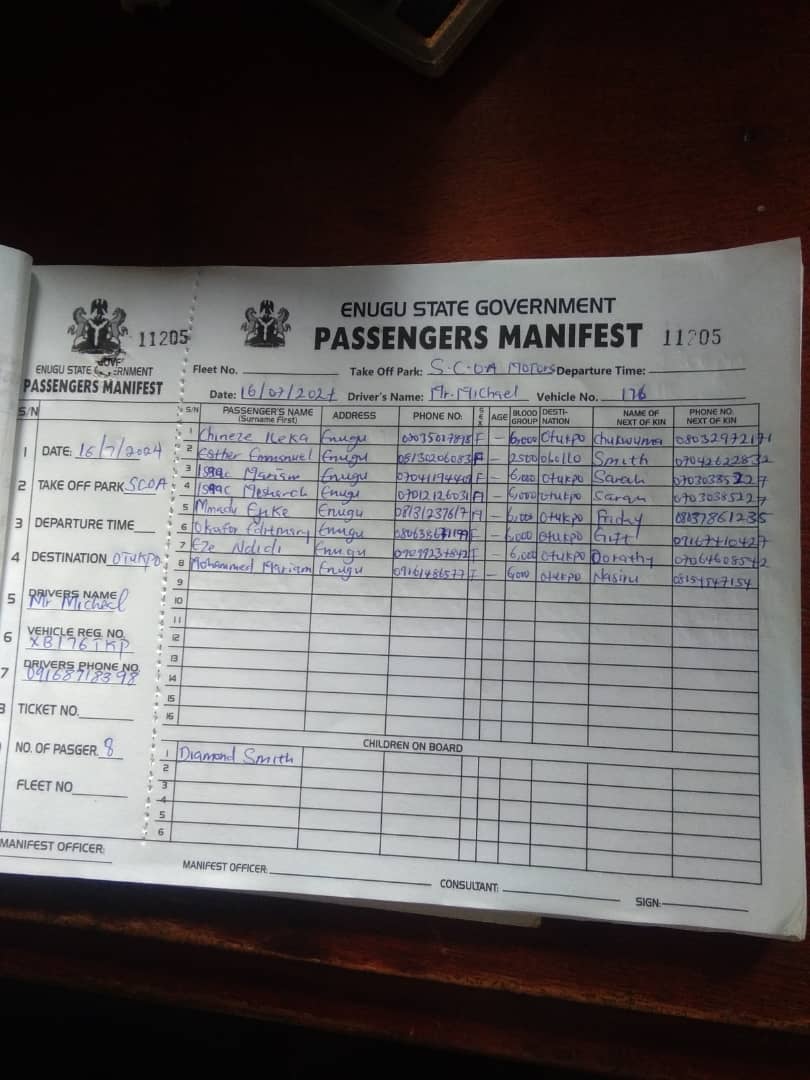 11205
ENUGU STATE GOVERNMENT
PASSENGERS MANIFEST
S/N
1 DATE: 16/7/2024
2 TAKE OFF PARK SCOA
3 DEPARTURE TIME
4 DESTINATION OTUKPO
5 DRIVERS NAME Mr Micheal
6 VEHICLE REG. NO. XB176TKP
7 DRIVERS PHONE NO. 09168718398
TICKET NO.
NO. OF PASGER. 8
FLEET NO
MANIFEST OFFICER:
ENUGU STATE GOVERNMENT
PASSENGERS MANIFEST 11205
Fleet No. Take Off Park: S.C.OA Motors Departure Time:
Date: 16/07/2024 Driver's Name: Mr. Michael Vehicle No. 176
S/N PASSENGER'S NAME (Surname First) ADDRESS PHONE NO: SEX AGE BLOOD GROUP DESTI-NATION NAME OF NEXT OF KIN PHONE NO. NEXT OF KIN
1 Chineze Enugu F - 6,000 Otukpo Chukwuma
2 Esther Emmanuel Enugu - 2500 Obollo Smith 07042622832
3 Isaac Mariam Enugu F - 6,000 Otukpo Sarah 07030385227
4 Isaac Enugu 07012126031 - 6,000 Otukpo Sarah 07030385227
5 Mmadu Enugu - 6,000 Otukpo Friday 08137861235
6 Okafor Enugu F - 6,000 Otukpo Gift 09167410427
7 Eze Ndidi Enugu F - 6,000 Otukpo Dorathy 07064608542
8 Mohammed Mariam Enugu 09161486577 F - 6000 Otukpo Nasiru 08154547154
9
10
11
12
13
14
15
16
CHILDREN ON BOARD
1 Diamond Smith
2
3
4
5
6
MANIFEST OFFICER: CONSULTANT: SIGN: